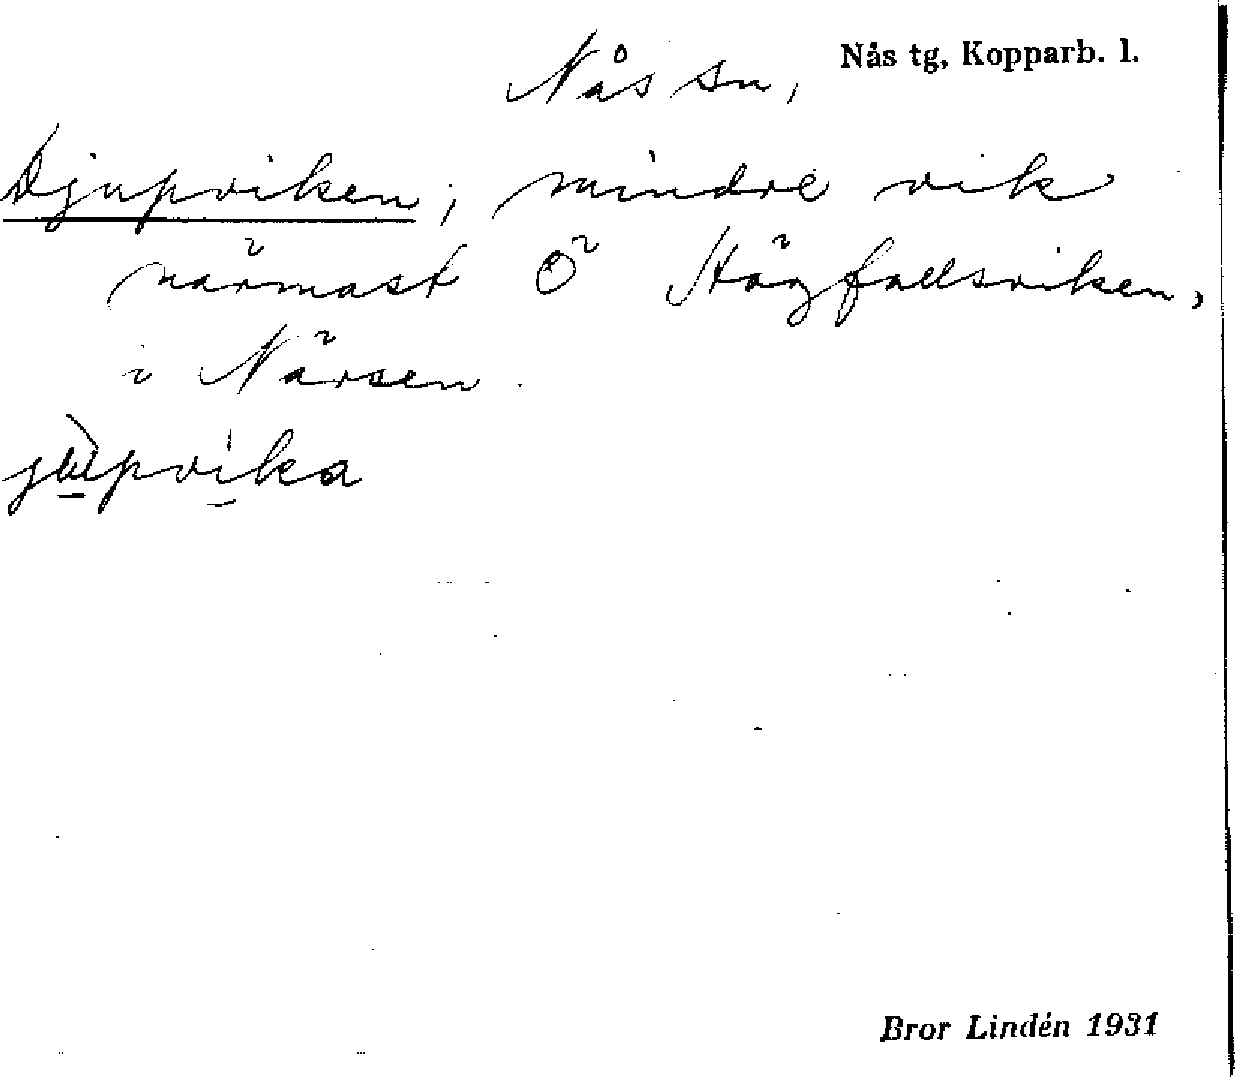 Nås sn, Nås tg, Kopparb. l.
Djupviken, mindre vik
närmast Ö Hägfallsviken,
i Närsen.
jupvika
Bror Lindén 1931